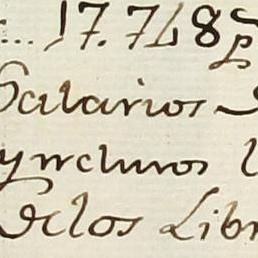 17.748 p
Salarios
ynclusos
delos Libr